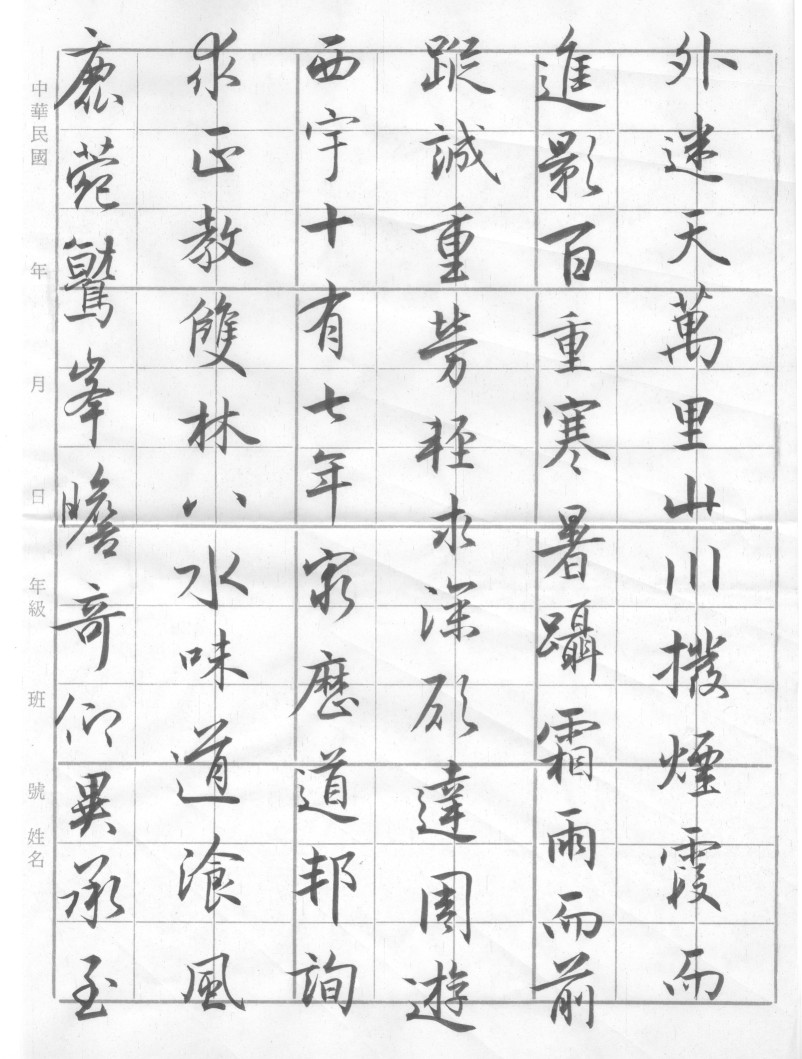 外迷天萬里山川撥煙霞而
進影百重寒暑躡霜雨而前
蹤誠重勞輕求深願達周遊
西宇十有七年窮歷道邦詢
求正教雙林八水味道飡風
鹿菀鷲峯瞻奇仰異承至
中華民國 年 月 日 年級 班 號 姓名